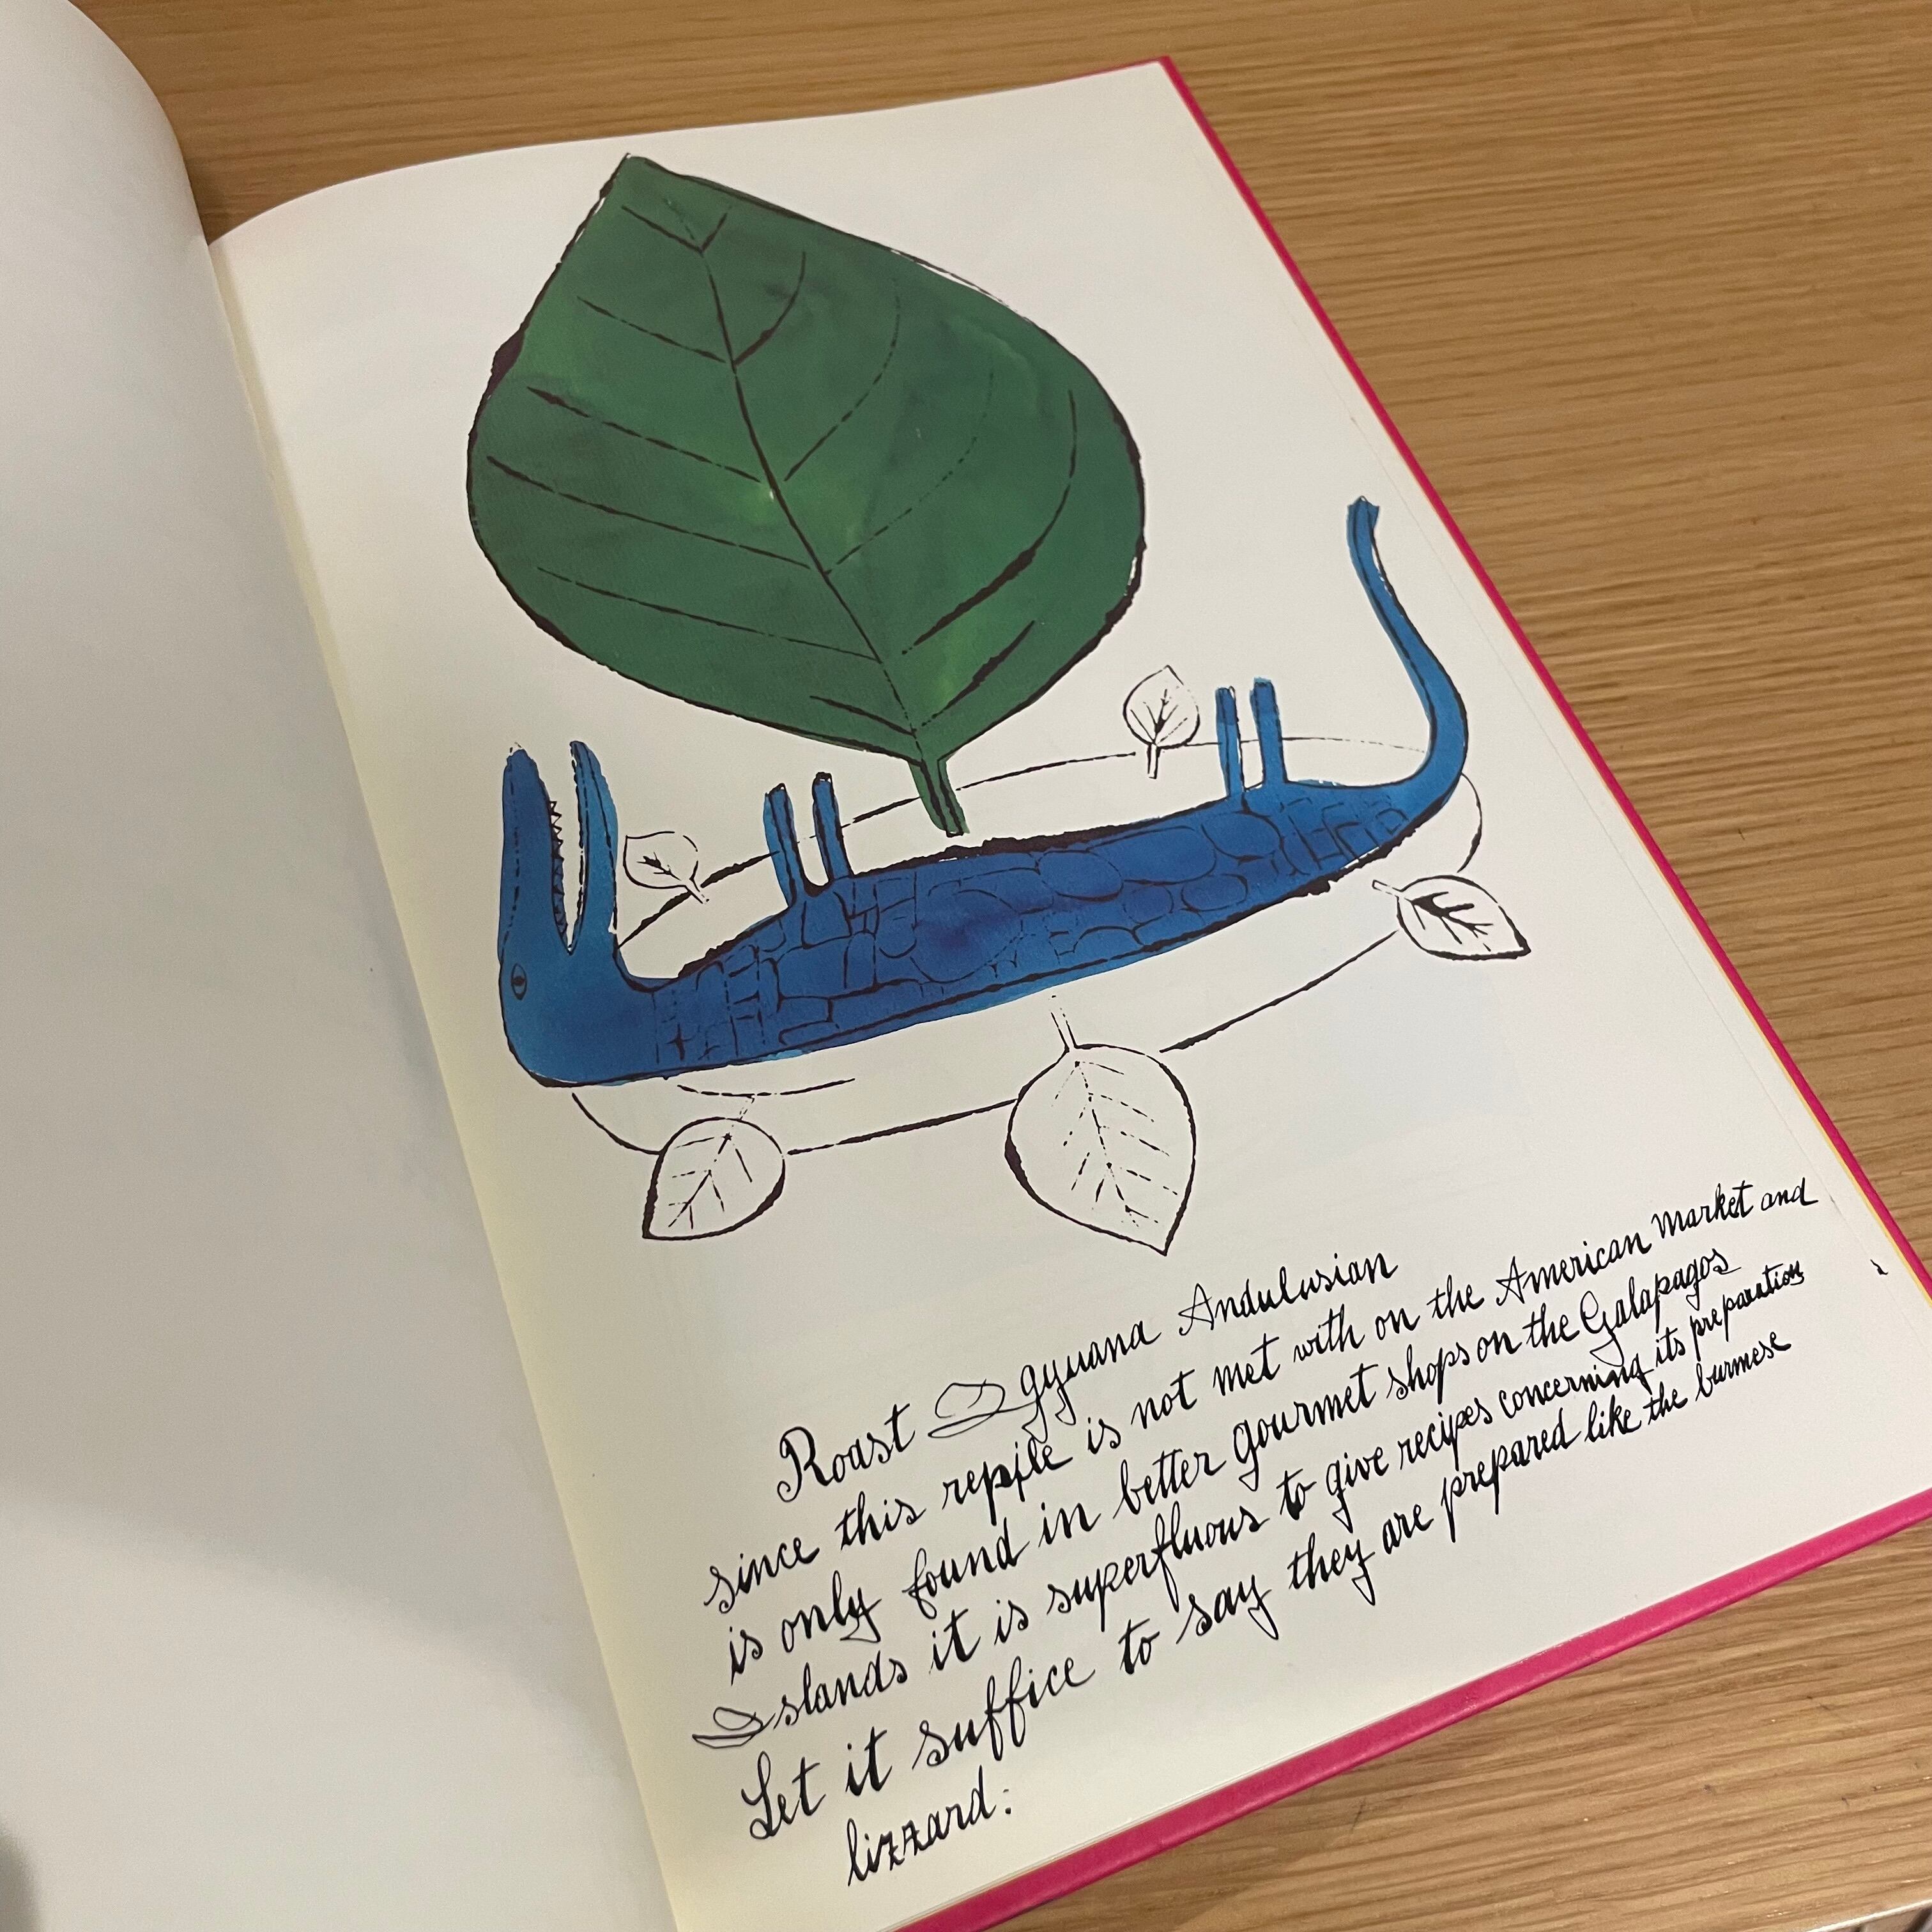 Roast Igyuana Andulusian
since this reptile is not met with on the American market and
is only found in better gourmet shops on the Galapagos
Islands it is superfluous to give recipes concerning its preparation
Let it suffice to say they are prepared like the burmese
lizzard: